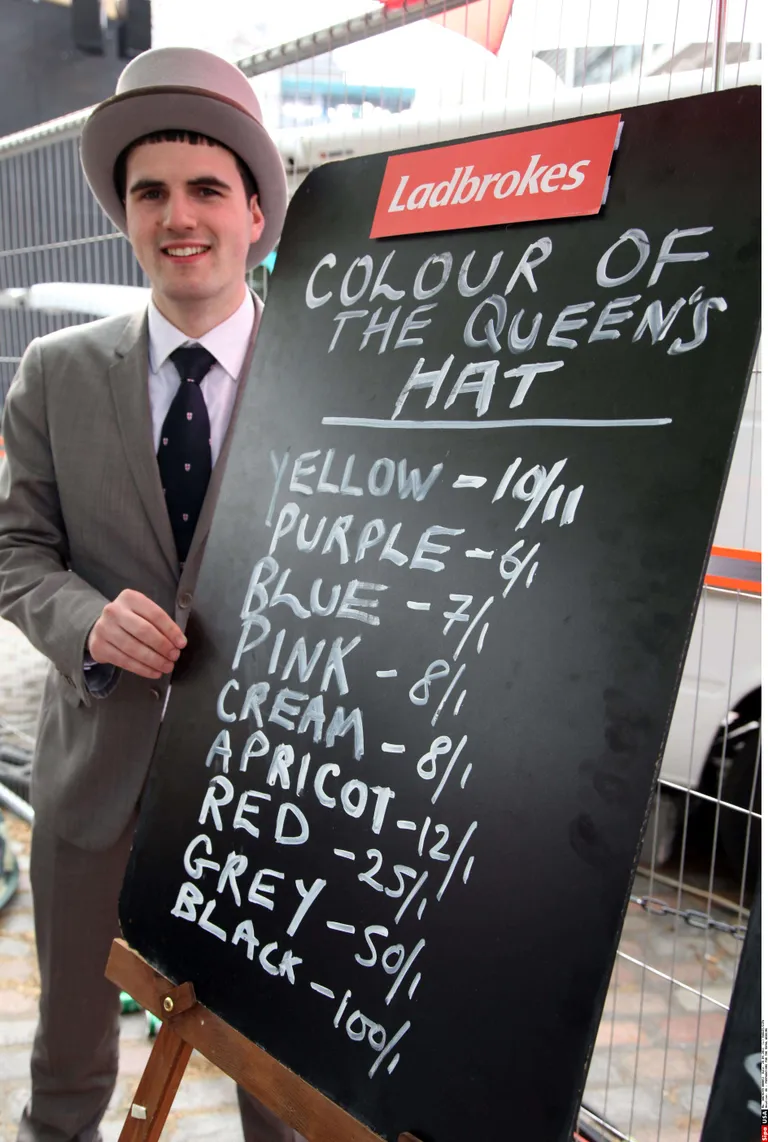 Ladbrokes
COLOUR OF
THE QUEEN'S
HAT
YELLOW - 10/11
PURPLE - 6/1
BLUE - 7/1
PINK - 8/1
CREAM - 8/1
APRICOT - 12/1
RED - 25/1
GREY - 50/1
BLACK - 100/1